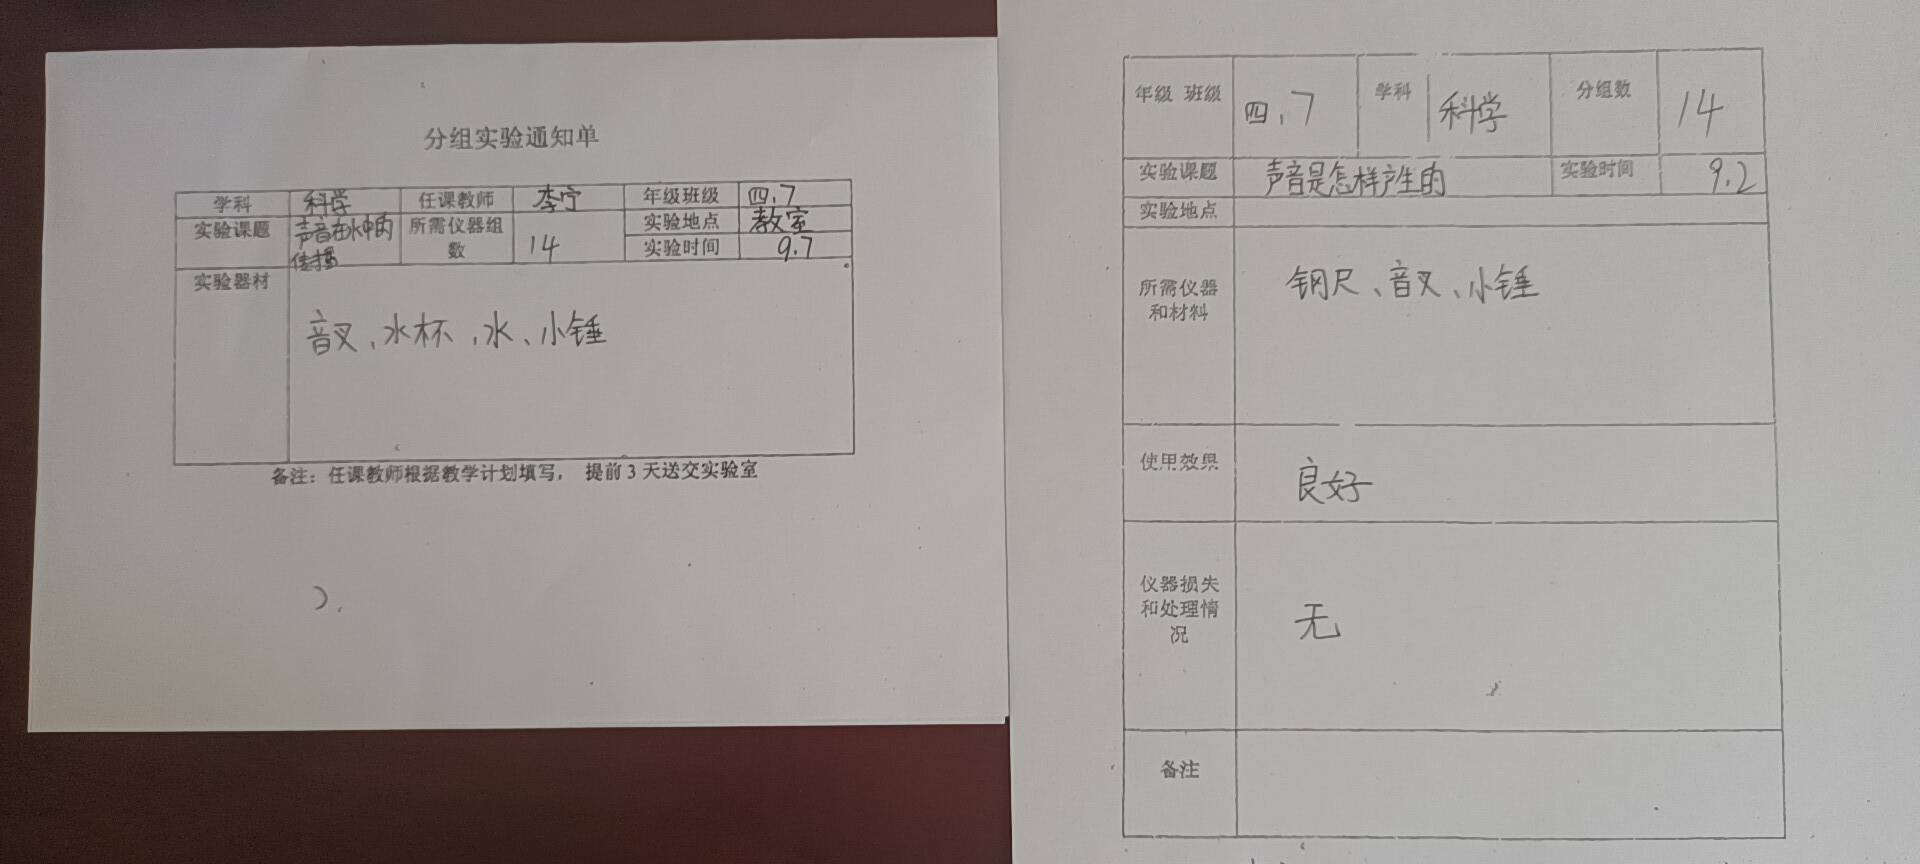 分组实验通知单
学科 科学 任课教师 李宁 年级班级 四.7
实验课题 声音在水中的传播 所需仪器组数 14 实验地点 教室
实验时间 9.7
实验器材
音叉、水杯、水、小锤
备注：任课教师根据教学计划填写， 提前3天送交实验室
年级 班级 四.7 学科 科学 分组数 14
实验课题 声音是怎样产生的 实验时间 9.2
实验地点
所需仪器和材料 钢尺、音叉、小锤
使用效果 良好
仪器损失和处理情况 无
备注